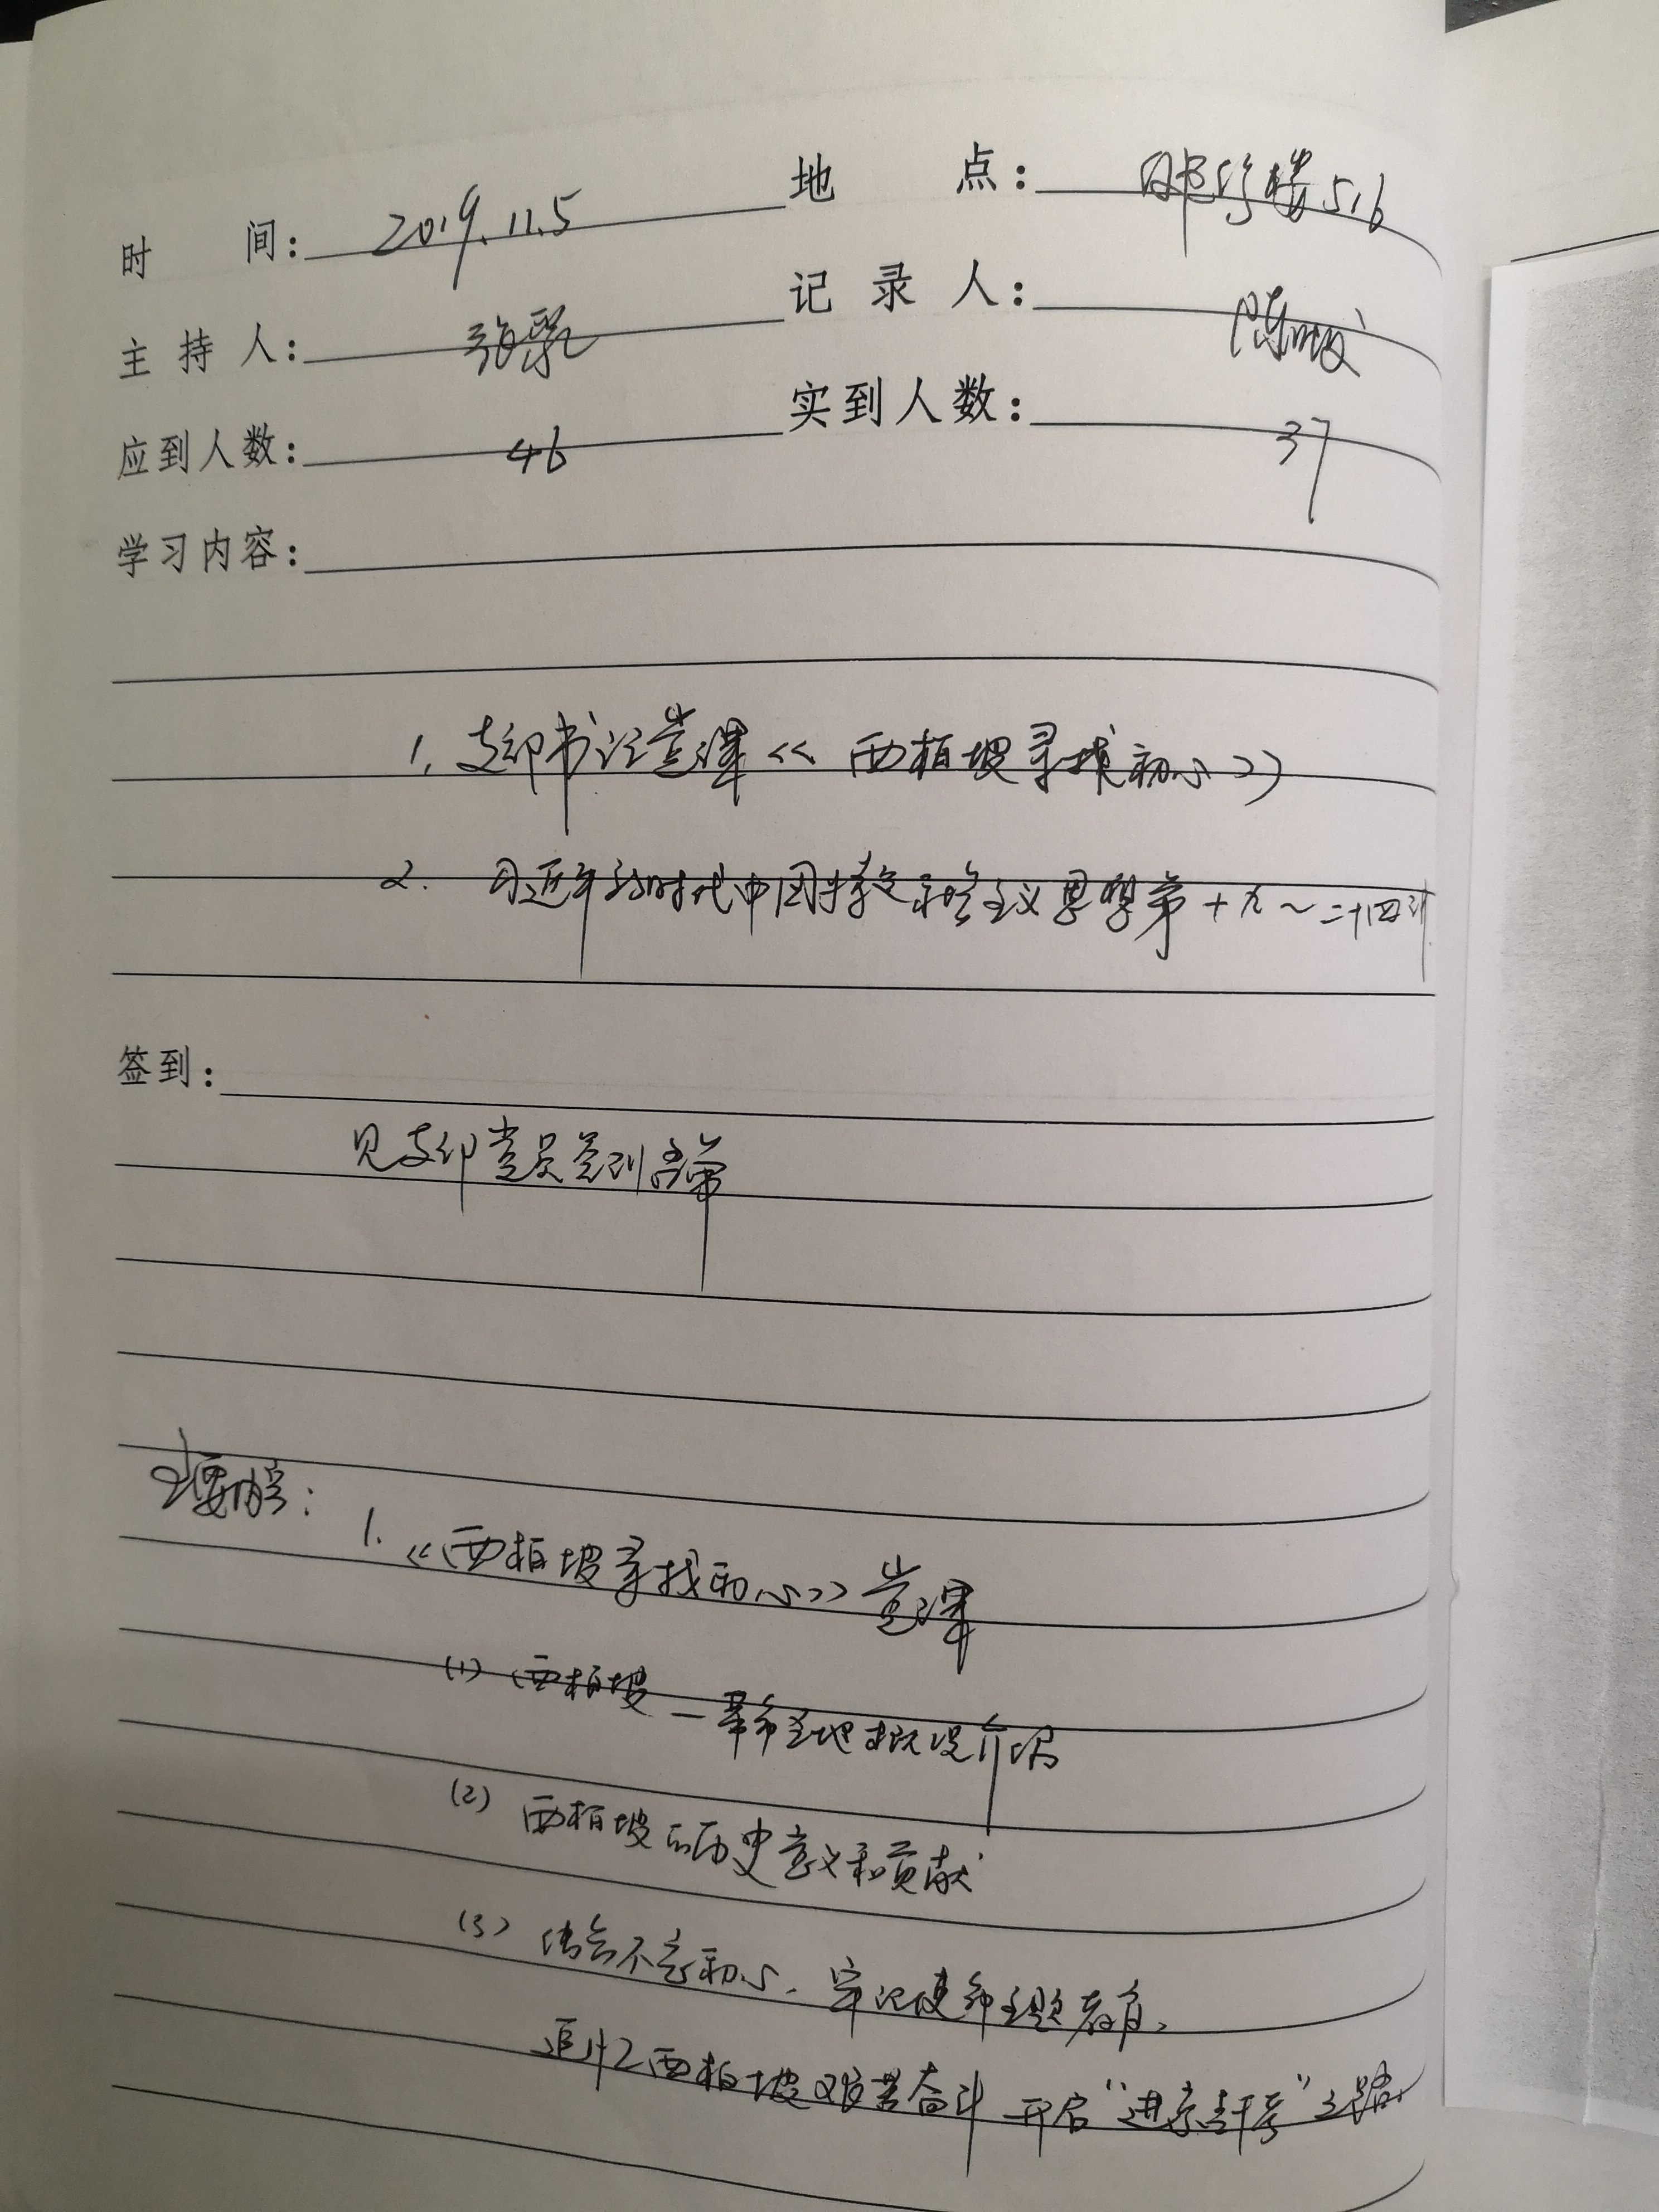 时 间: 2019.11.5 地 点: 楼516
主 持 人: 张 记 录 人: 陈
应到人数: 46 实到人数: 37
学习内容:
1. 支部书记党课《西柏坡寻找初心》
2. 习近平新时代中国特色社会主义思想第十九~二十四讲
签到:
见支部党员签到名单
主要内容:
1.《西柏坡寻找初心》党课
(1) 西柏坡—革命圣地概况介绍
(2) 西柏坡的历史意义和贡献
(3) 结合不忘初心、牢记使命主题教育,
追忆西柏坡艰苦奋斗 开启“进京赶考”之路.